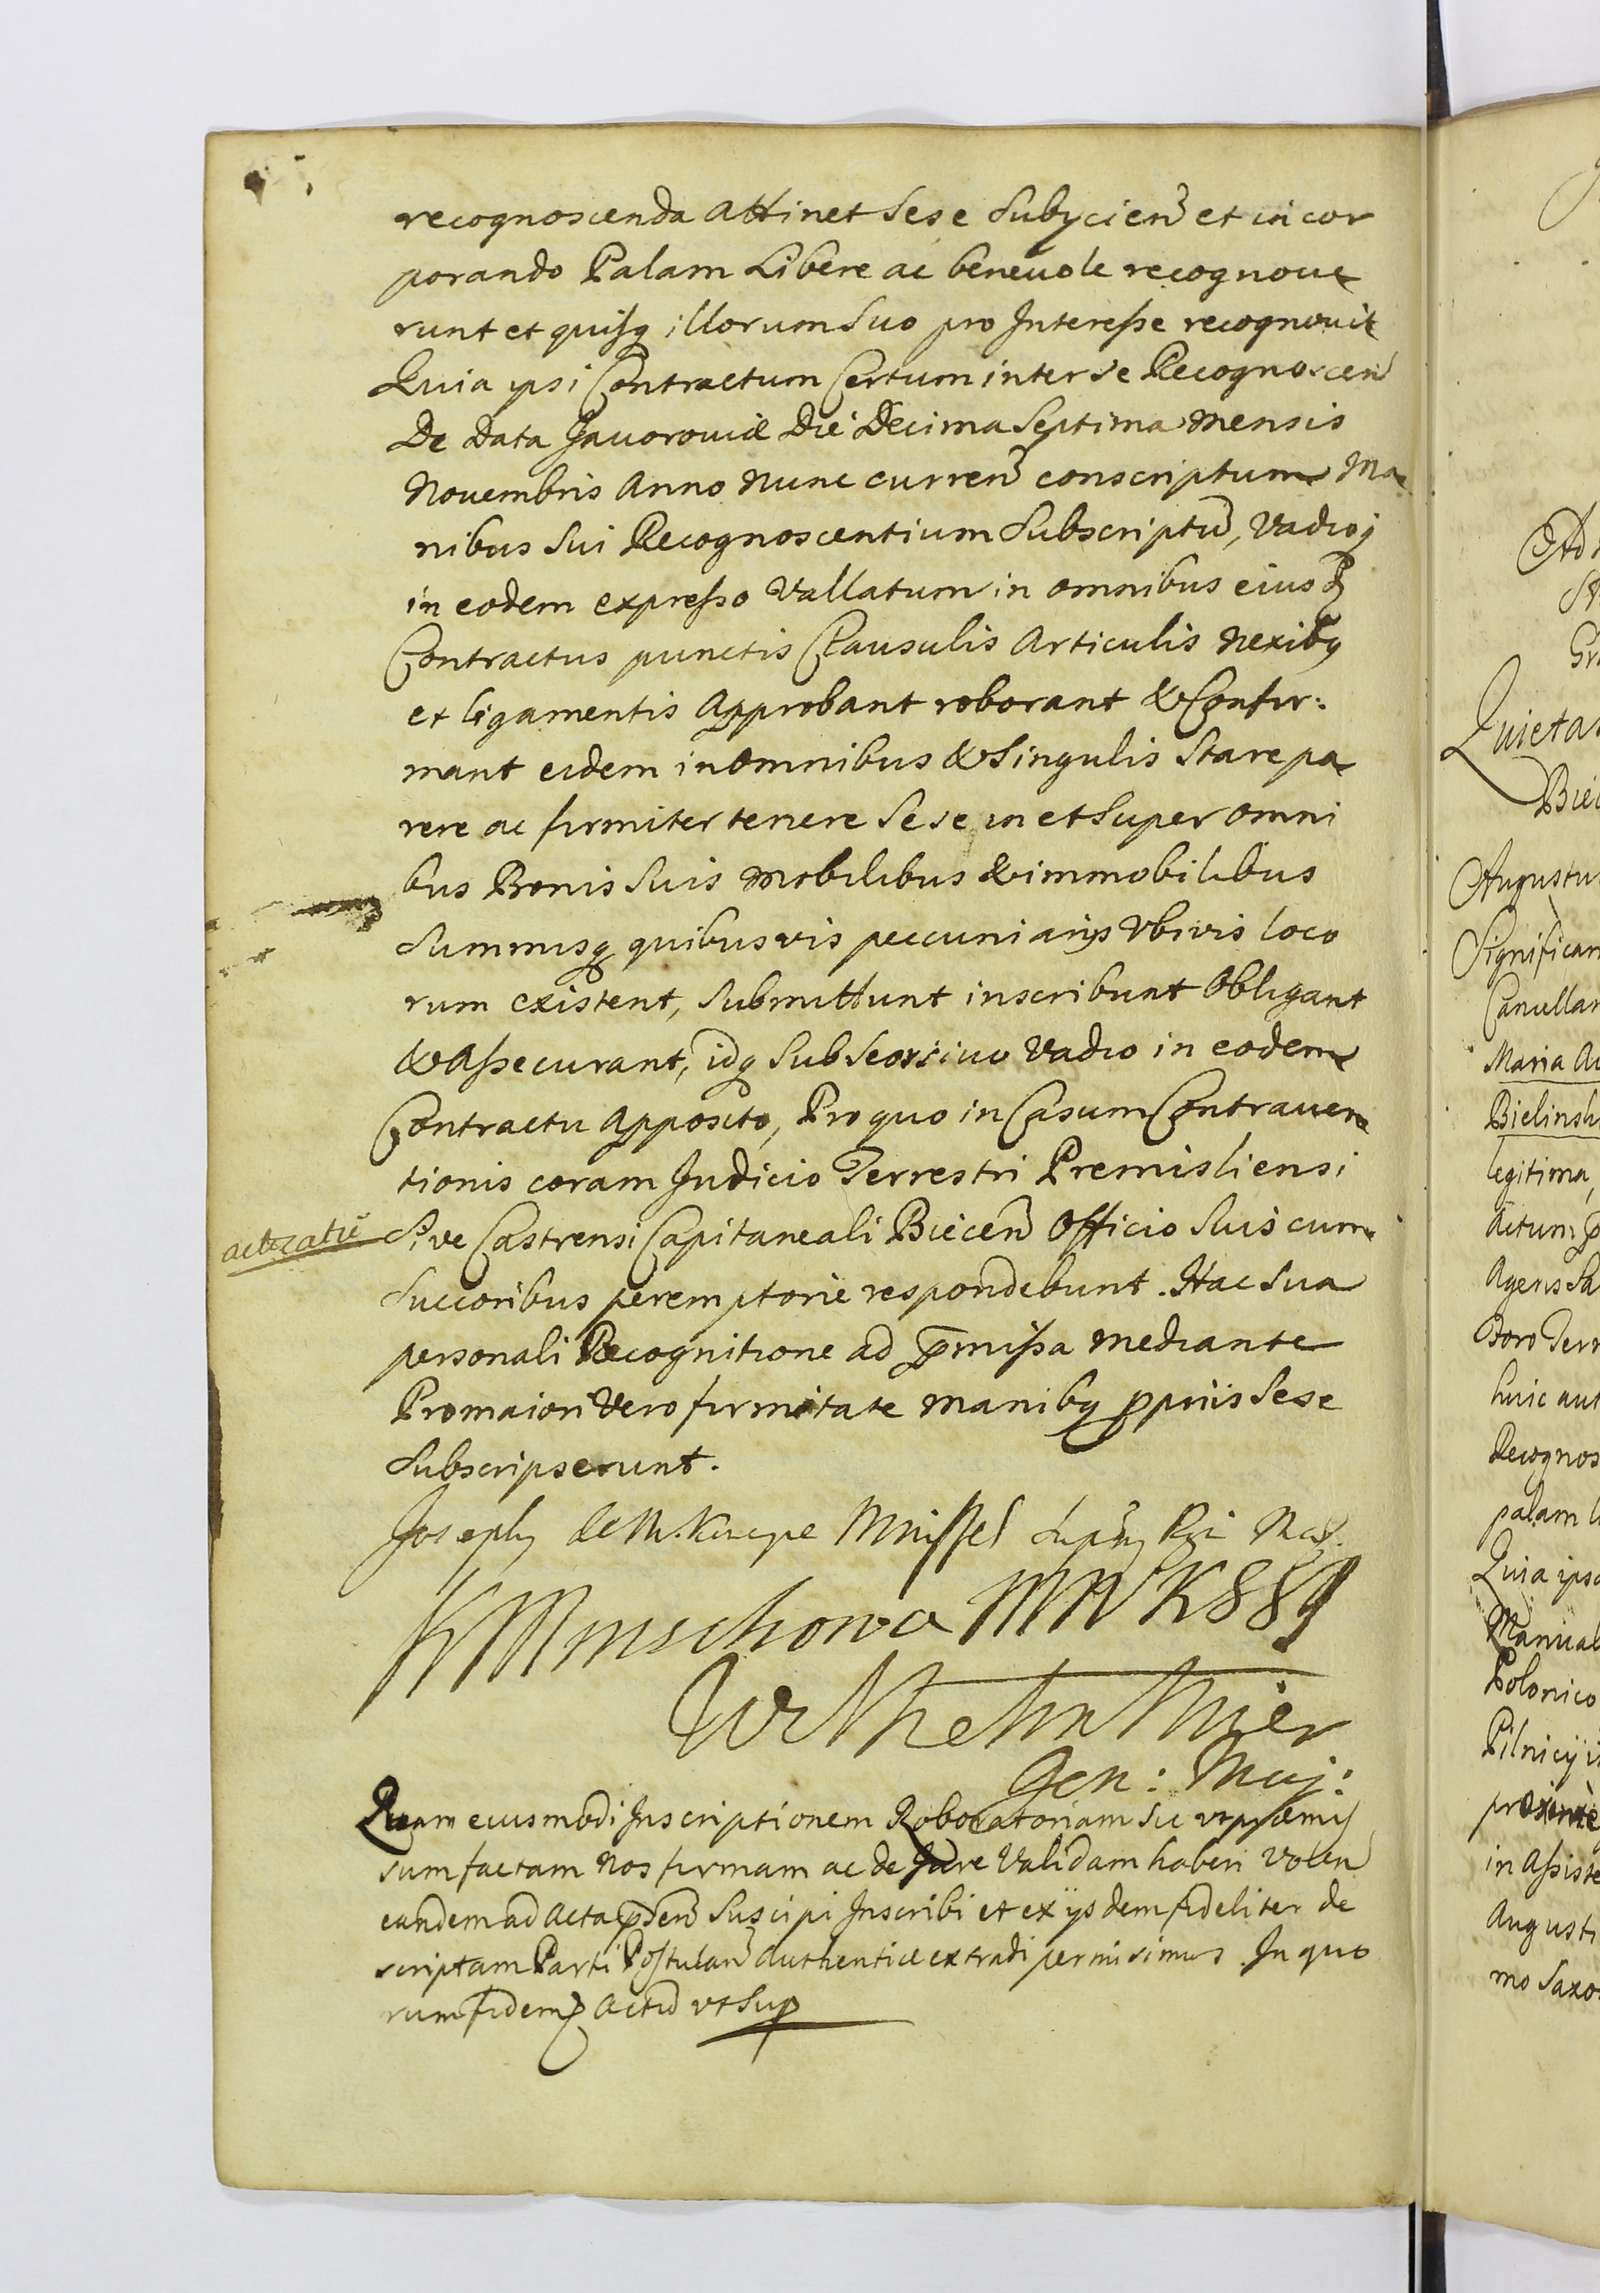 recognoscenda attinet sese subycien̄ et incor
porando Palam Libere ac beneuole recognoue
runt et quisq illorum suo pro Interesse recognouit
Quia ipsi Contractum Certum inter se Recognoscen̄
De Data Jauorouiæ Die Decima Septima mensis
Nouembris Anno Nunc curren̄ conscriptum Ma
nibus sui Recognoscentium subscriptū, Vadioq
in eodem expresso Vallatum in omnibus eiusd
Contractus punctis Clausulis Articulis Nexibq
et ligamentis Approbant roborant & Confir:
mant eidem in omnibus & singulis stare pa
rere ac firmiter tenere sese in et super omni
bus Bonis suis Mobilibus & immobilibus
summisq quibusvis peccuniarys Vbivis loco
rum existent, submittunt inscribunt Obligant
& Assecurant, idq sub seorsiuo Vadio in eodem
Contractu Apposito, Pro quo in Casum Contrauen
tionis coram Judicio Terrestri Premisliensi
actis citatū
Siue Castrensi Capitaneali Biecen̄ Officio suis cum
succoribus peremptorie respondebunt. Hac sua
personali Recognitione ad p̄missa mediante
Pro maiori Vero firmitate manibq ppriis sese
subscripserunt.
Josephq de M. Kunze Mniszek
K Mnischowa MWK
Wilhelm Mier
Gen: Maj:
Quam eiusmodi Inscriptionem Roboratoriam sic vt præmis
sum factam Nos firmam ac de Jure Validam haberi Volen̄
eandem ad Acta p̄sen̄ suscipi Inscribi et ex ysdem fideliter de
scriptam Parti Postulan̄ authentice extradi permisimus. In quo
rum fidem Actū vt sup
Quietas
Augustu
Significan
Cancellar
Maria
Bielinsk
legitima,
Actum
Agens
foro Terr
huic
Recognos
palam
Quia ipsa
Manual
Polonico
Pilnicy
proxime
in Assiste
Augusti
mo Saxo